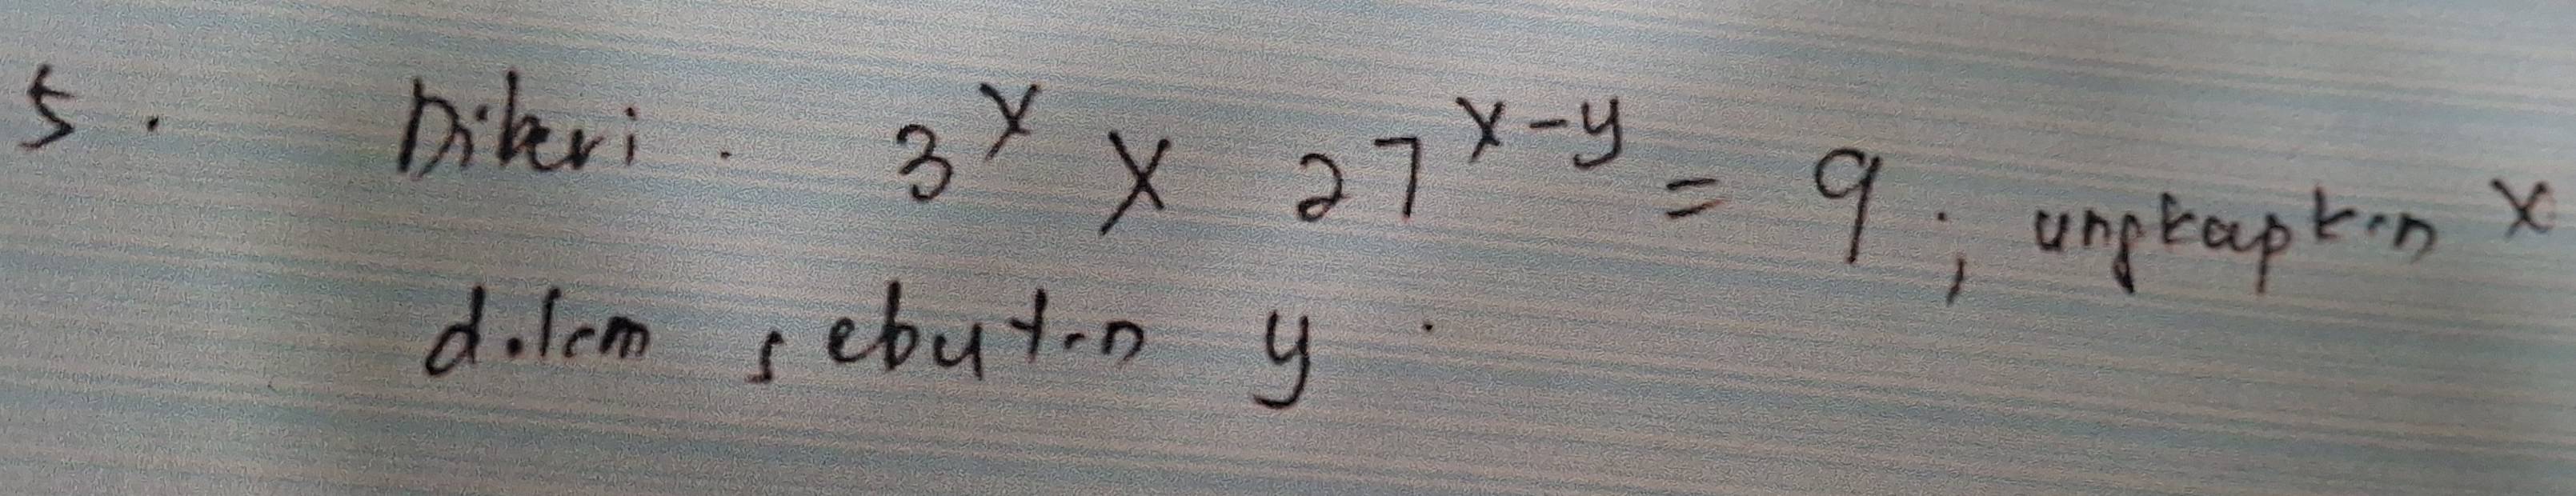 5. Diberi. 3^x X 27^x-y = 9; ungkapkan x
dalam sebutan y.